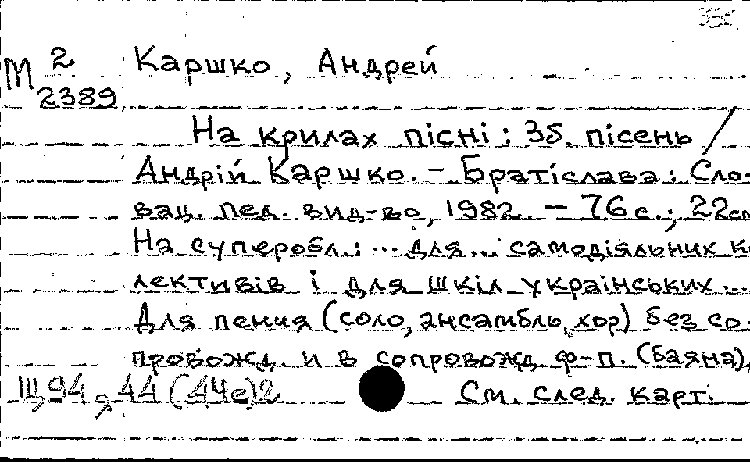 М 2 Каршко, Андрей
2389
На крилах пісні : 35 пісень /
Андрій Каршко. – Братіслава : Сло-
вац. пед. вид-во, 1982. – 76 с. ; 22 см
На суперобл.: ... для ... самодіяльних ко
лективів і для шкіл українських ...
Для пения (соло, ансамбль, хор) без со-
провожд. и в сопровожд. ф-п. (баяна),
Щ94 См. след. карт.